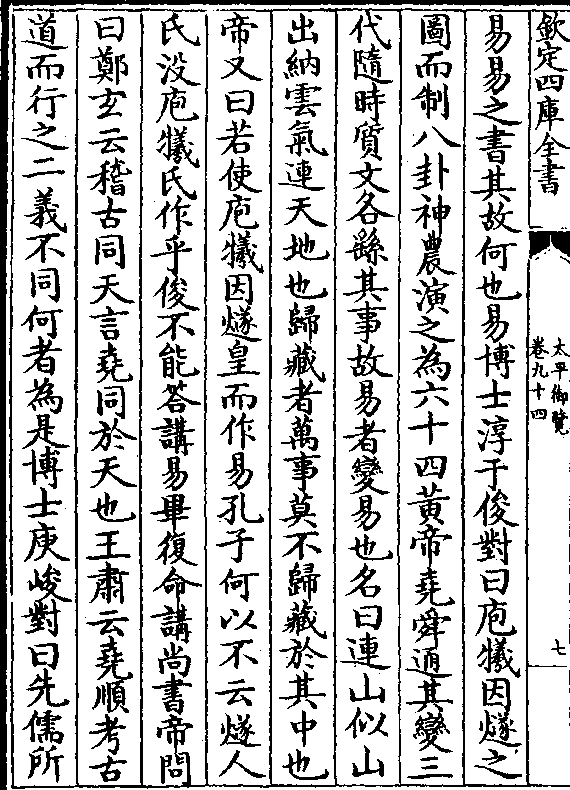 欽定四庫全書
太平御覽
卷九十四
七
易易之書其故何也易博士淳于俊對曰庖犧因燧之
圖而制八卦神農演之為六十四黃帝堯舜通其變三
代隨時質文各繇其事故易者變易也名曰連山似山
出納雲氣連天地也歸藏者萬事莫不歸藏於其中也
帝又曰若使庖犧因燧皇而作易孔子何以不云燧人
氏没庖犧氏作乎俊不能答講易畢復命講尚書帝問
曰鄭玄云稽古同天言堯同於天也王肅云堯順考古
道而行之二義不同何者為是博士庾峻對曰先儒所